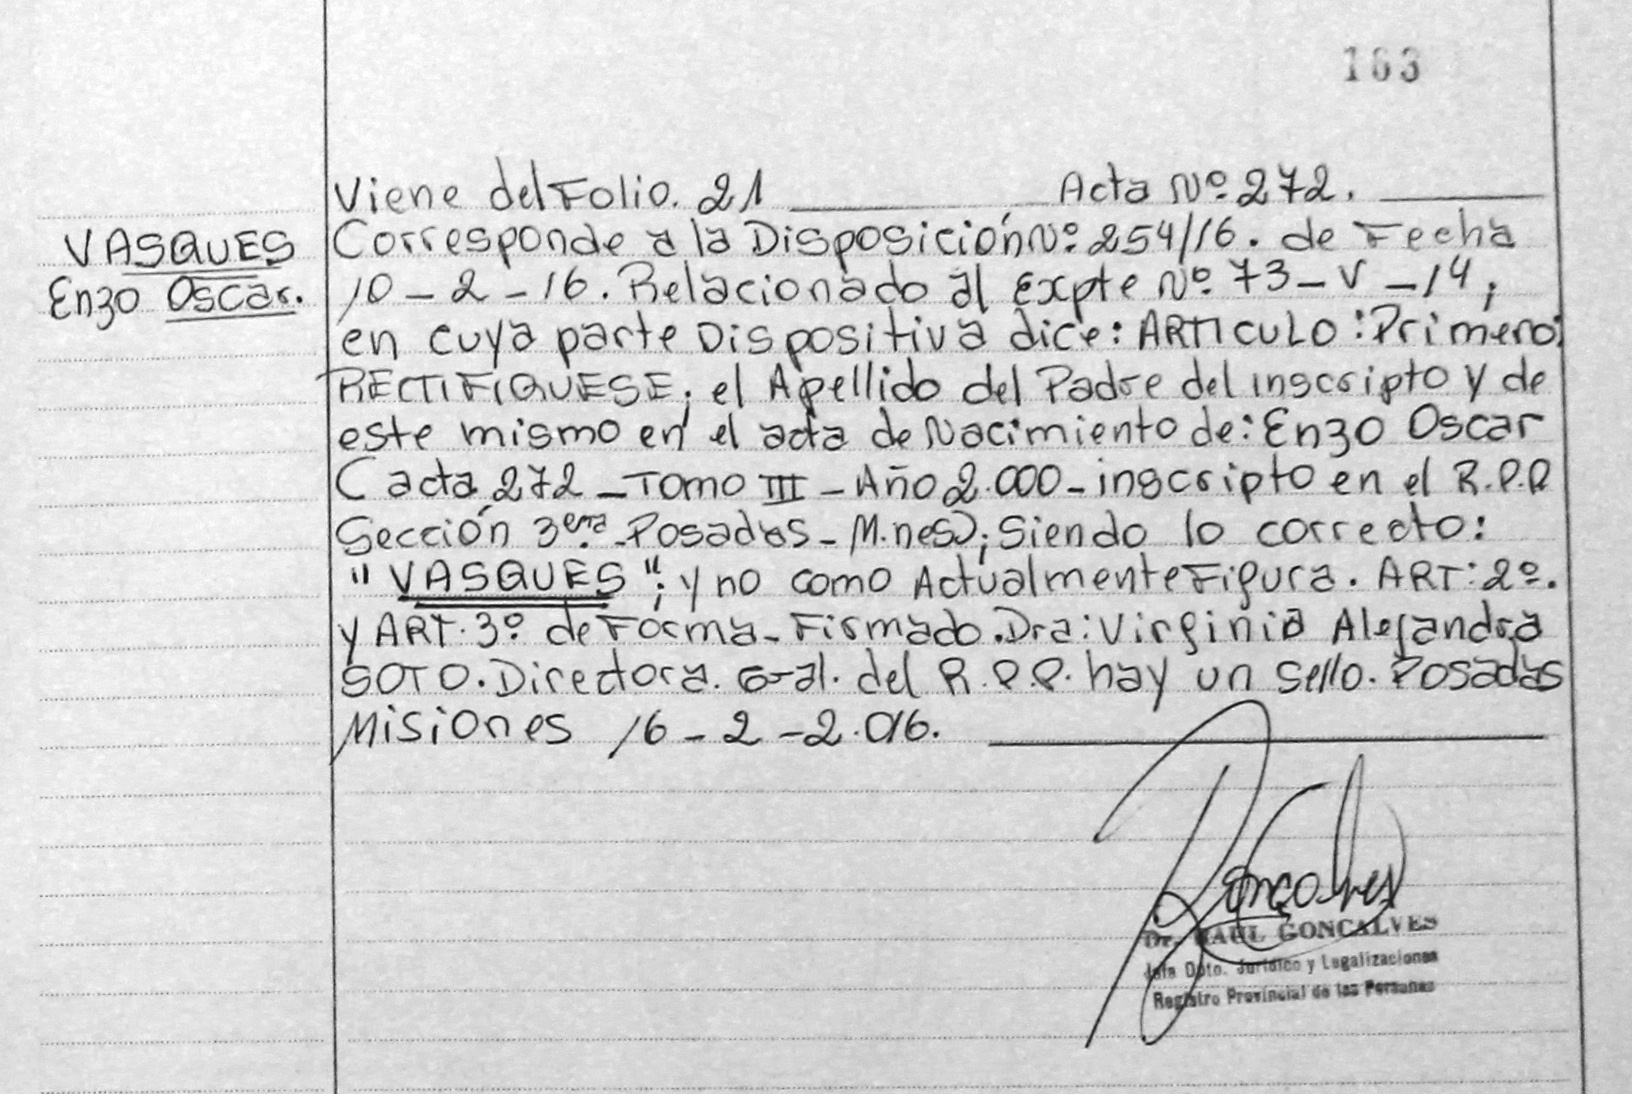 163
Viene del Folio. 21 ____ Acta Nº 272. ____
VASQUES
Enzo Oscar.
Corresponde a la Disposición Nº 254/16. de Fecha
10-2-16. Relacionado al Expte Nº 73-V-14;
en cuya parte Dispositiva dice: ARTICULO: Primero:
RECTIFIQUESE; el Apellido del Padre del inscripto y de
este mismo en el acta de Nacimiento de: Enzo Oscar
(acta 272 - Tomo III - Año 2.000 - inscripto en el R.P.P
Sección 3era - Posadas - M.nes); Siendo lo correcto:
"VASQUES"; y no como Actualmente Figura. ART: 2º.
y ART. 3º de Forma - Firmado. Dra: Virginia Alejandra
SOTO. Directora. Gral. del R.P.P. hay un sello. Posadas
Misiones 16-2-2.016. ____
Goncalves
Dr. RAUL GONCALVES
Jefe Dpto. Jurídico y Legalizaciones
Registro Provincial de las Personas